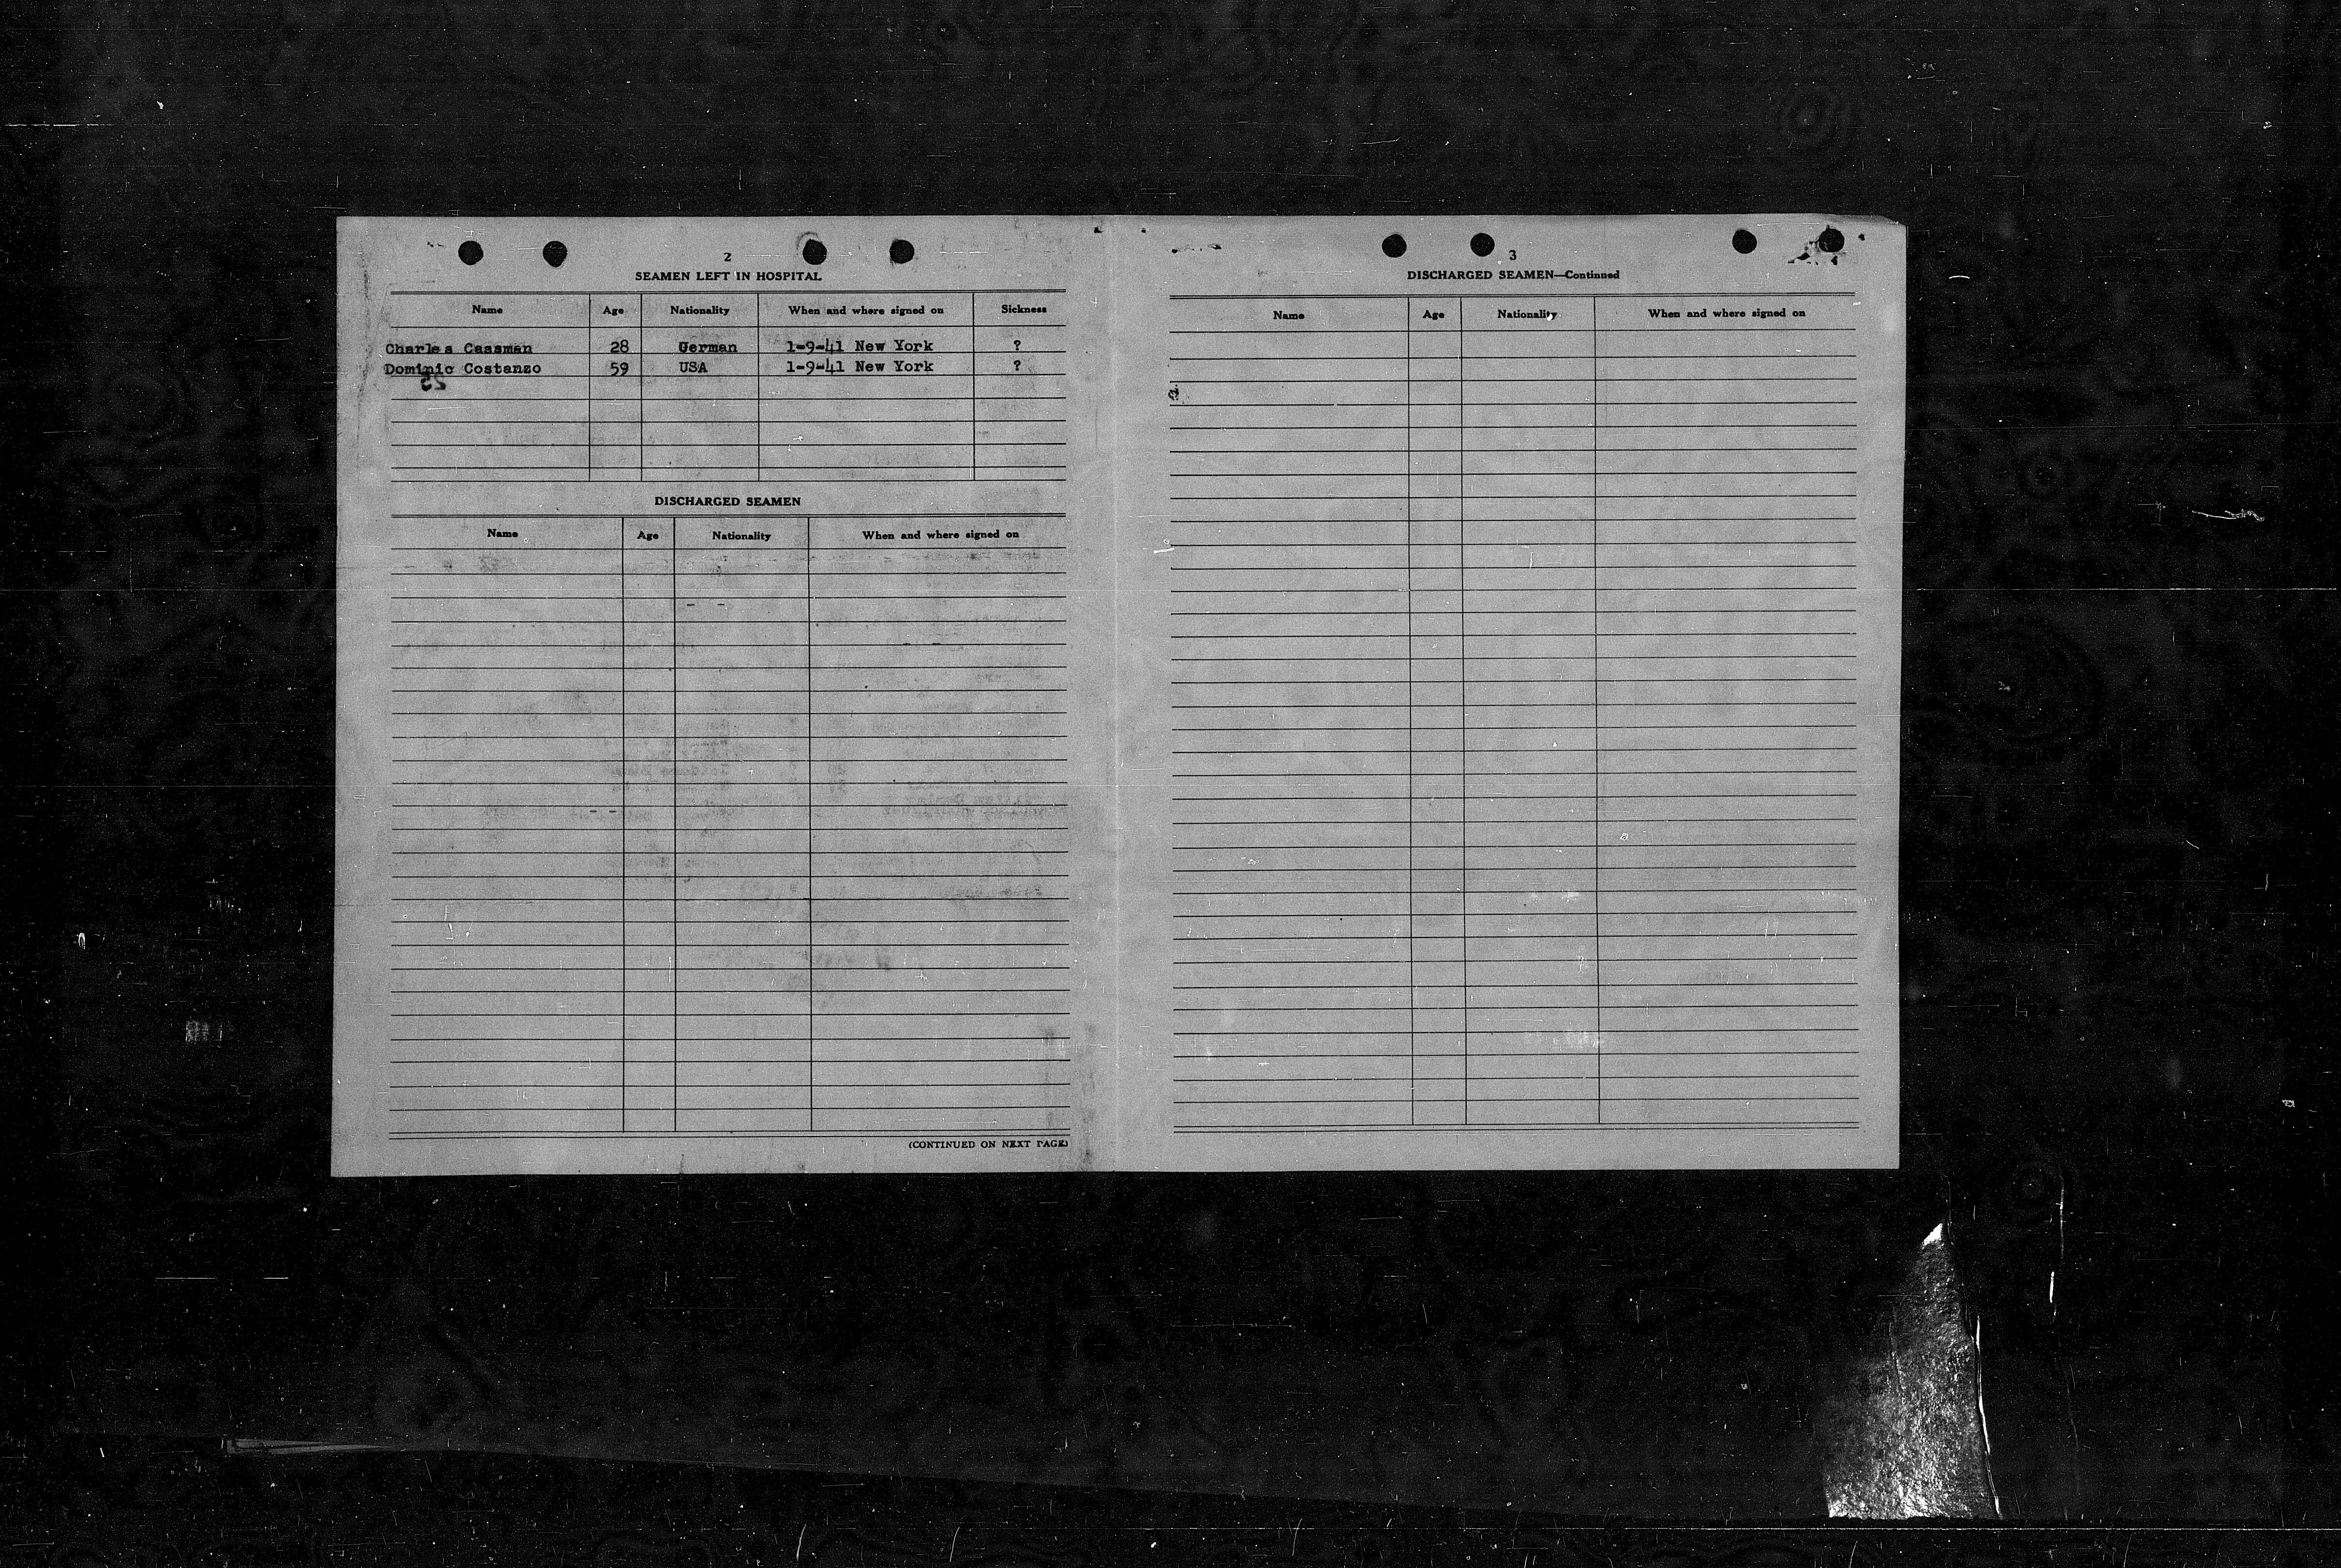 2
SEAMEN LEFT IN HOSPITAL
Name Age Nationality When and where signed on Sickness
Charles Cassman 28 German 1-9-41 New York ?
Dominic Costanzo 59 USA 1-9-41 New York ?
DISCHARGED SEAMEN
Name Age Nationality When and where signed on
(CONTINUED ON NEXT PAGE)
3
DISCHARGED SEAMEN—Continued
Name Age Nationality When and where signed on